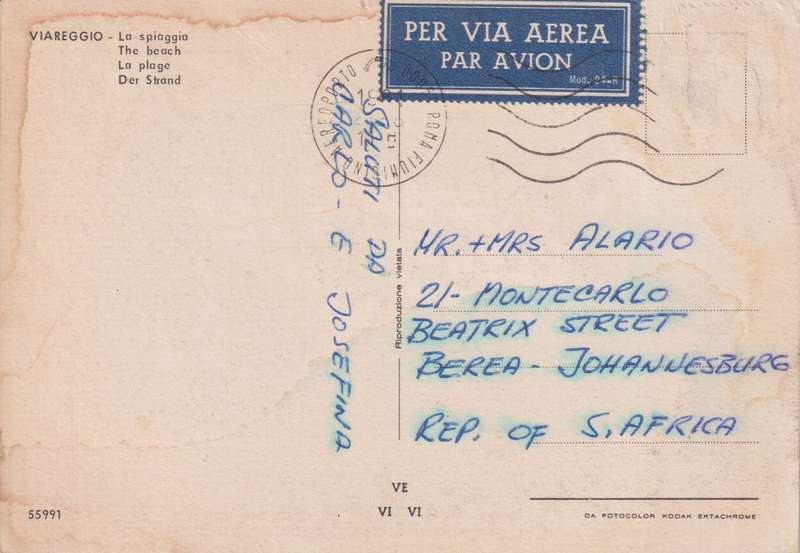 VIAREGGIO - La spiaggia
The beach
La plage
Der Strand
PER VIA AEREA
PAR AVION
Mod. 24-R
ROMA FIUMICINO AEROPORTO
SALUTI DA
CARLO - E JOSEFINA
Riproduzione vietata
MR. + MRS ALARIO
21 - MONTECARLO
BEATRIX STREET
BEREA - JOHANNESBURG
REP. OF S. AFRICA
VE
VI VI
55991
DA FOTOCOLOR KODAK EKTACHROME